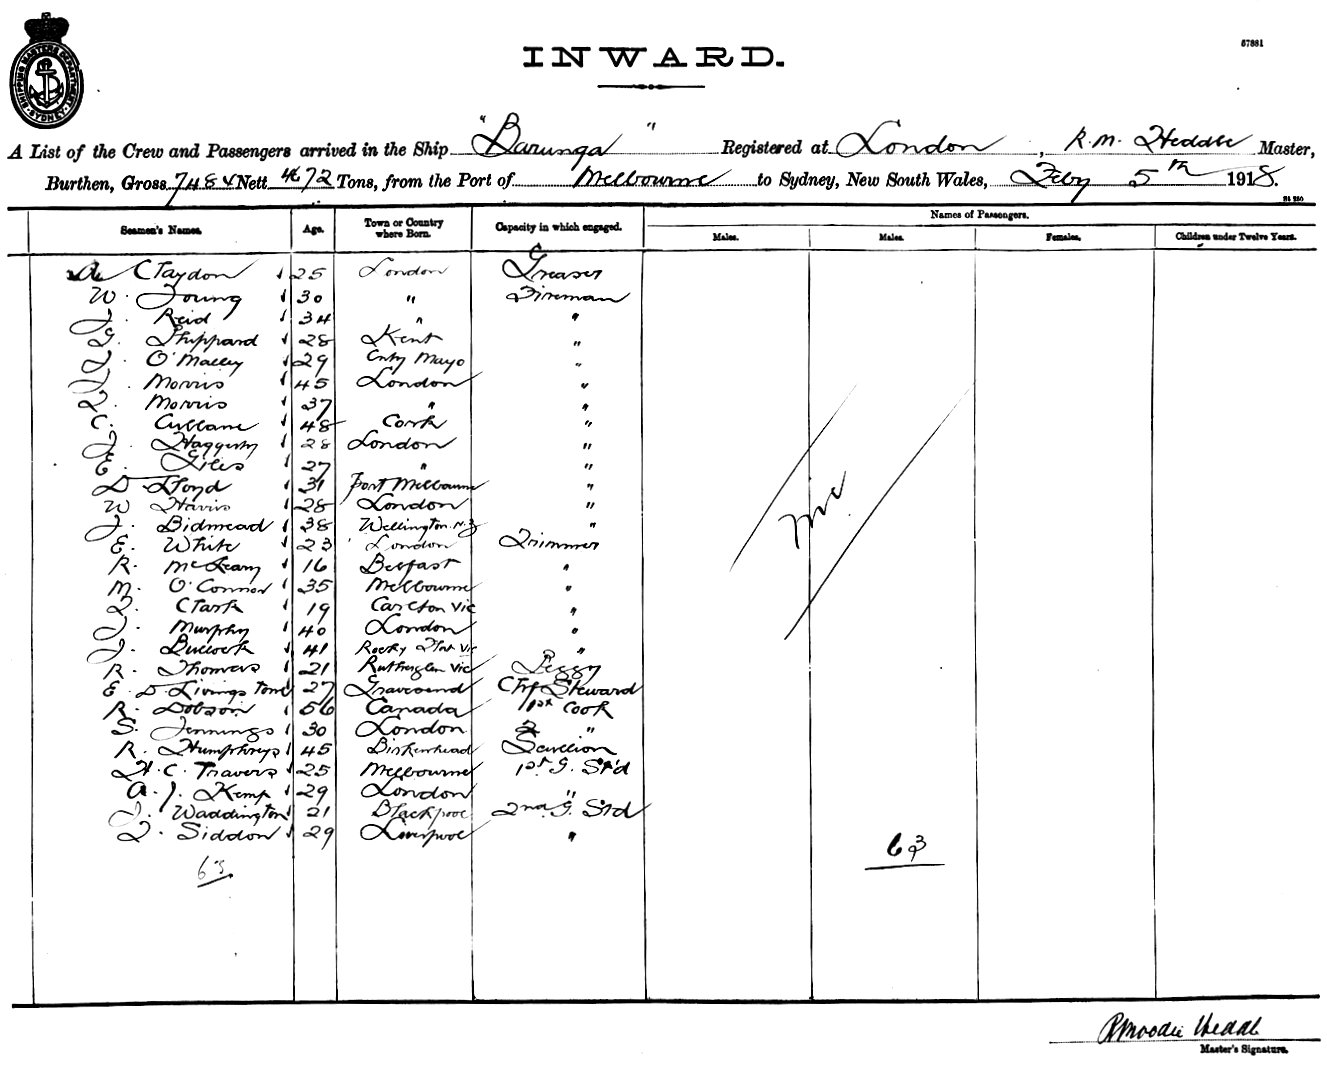 SHIPPING MASTERS DEPARTMENT SYDNEY
INWARD.
57881
A List of the Crew and Passengers arrived in the Ship "Barunga" Registered at London, R.M. Heddle Master,
Burthen, Gross 7484 Nett 4672 Tons, from the Port of Melbourne to Sydney, New South Wales, Feby 5th 1918.
Seamen's Names. Age. Town or Country where Born. Capacity in which engaged. Names of Passengers.
Males. Males. Females. Children under Twelve Years.
A Claydon 25 London Greaser
W. Young 30 " Fireman
J. Reid 34 " "
G. Shippard 28 Kent "
J. O'Malley 29 Cnty Mayo "
J. Morris 45 London "
Morris 37 " "
C. Cullane 48 Cork "
J. Haggerty 28 London "
E. Giles 27 " "
D. Lloyd 31 Port Melbourne "
W Harris 28 London "
J. Bidmead 38 Wellington N.Z "
E. White 23 London Trimmer
R. McLeary 16 Belfast "
M. O'Connor 35 Melbourne "
Clark 19 Carlton Vic "
J. Murphy 40 London "
J. Bullock 41 Rocky Flat Vic "
R. Thomas 21 Rutherglen Vic Peggy
E. D. Livingstone 27 Gravesend Chf Steward
R. Dobson 56 Canada 1st Cook
S. Jennings 30 London 2 "
R. Humphreys 45 Birkenhead Scullion
H. C. Travers 25 Melbourne 1st G. St'd
A. J. Kemp 29 London "
J. Waddington 21 Blackpool 2nd G. Std
Siddon 29 Liverpool "
63
Nil
63
R Moodie Heddle
Master's Signature.